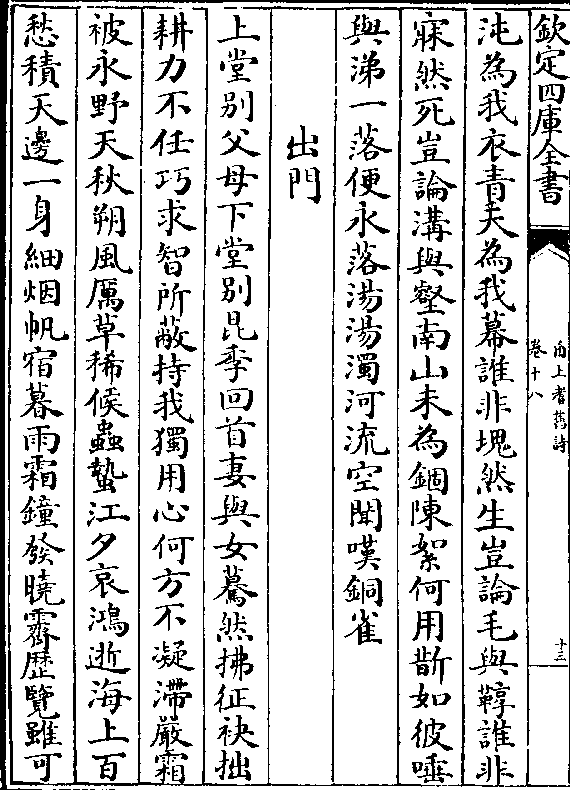 欽定四庫全書
甬上耆舊詩
卷十八
十三
沌為我衣青天為我幕誰非塊然生豈論毛與鞟誰非
寐然死豈論溝與壑南山未為錮陳絮何用斮如彼唾
與涕一落便永落湯湯濁河流空聞嘆銅雀
出門
上堂别父母下堂别昆季回首妻與女驀然拂征袂拙
耕力不任巧求智所蔽持我獨用心何方不凝滯嚴霜
被永野天秋朔風厲草稀候蟲蟄江夕哀鴻逝海上百
愁積天邊一身細烟帆宿暮雨霜鐘發曉霽歴覽雖可